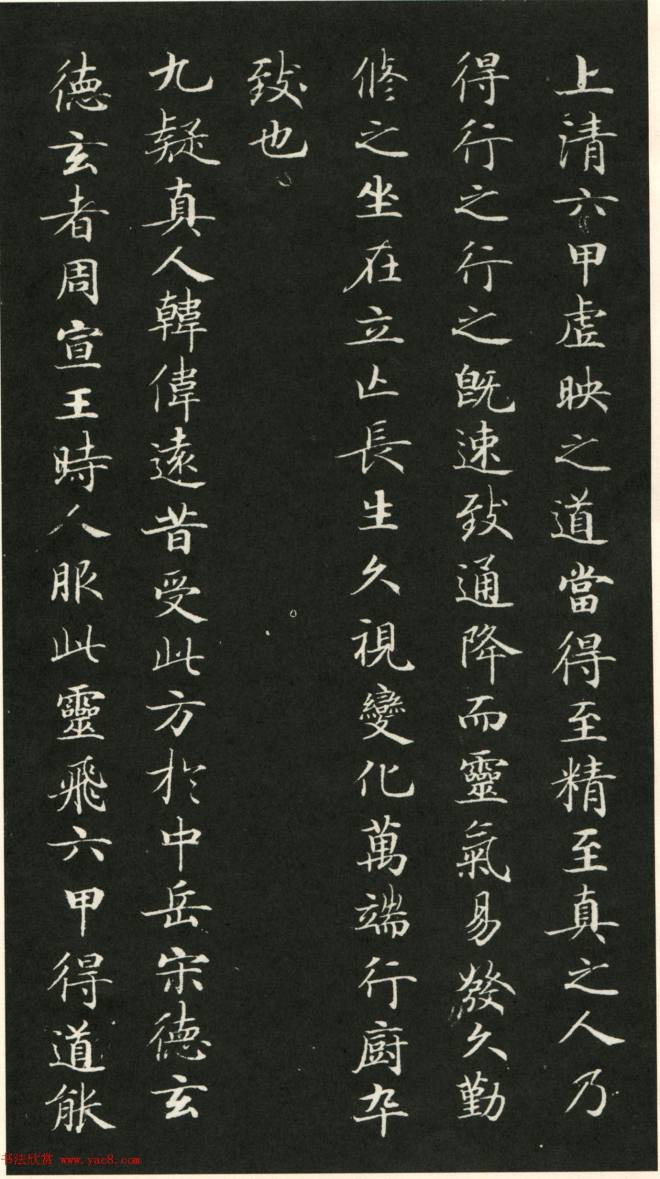 上清六甲虛映之道當得至精至真之人乃
得行之行之既速致通降而靈氣易發久勤
修之坐在立亡長生久視變化萬端行廚卒
致也
九疑真人韓偉遠昔受此方於中岳宋德玄
德玄者周宣王時人服此靈飛六甲得道能
书法欣赏 www.yac8.com